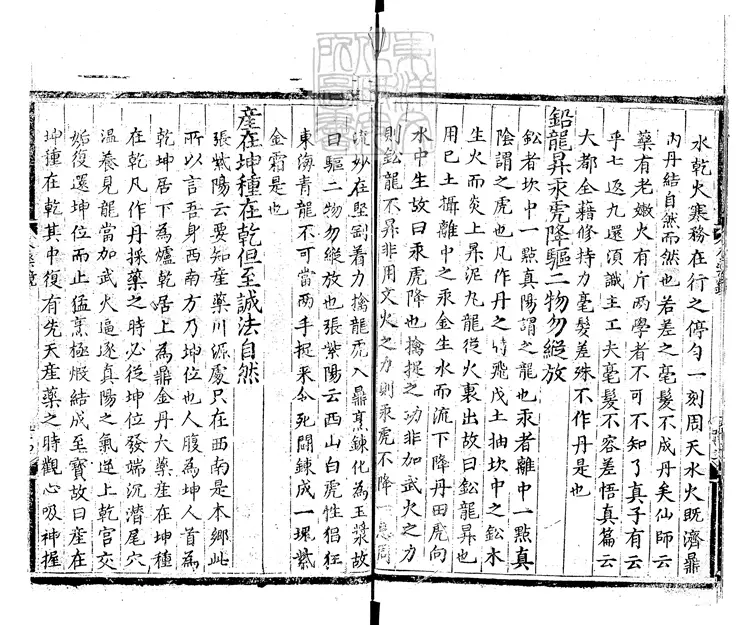 水乾火寒務在行之停勻一刻周天水火既濟鼎
內丹結自然而然也若差之毫髮不成丹矣仙師云
藥有老嫩火有斤兩學者不可不知了真子有云
乎七返九還須識主工夫毫髮不容差悟真篇云
大都全藉修持力毫髮差殊不作丹是也
鉛龍昇汞虎降驅二物勿縱放
鈆者坎中一點真陽謂之龍也汞者離中一點真
陰謂之虎也凡作丹之時飛戊土抽坎中之鈆木
生火而炎上昇泥丸龍從火裏出故曰鈆龍昇也
用己土擒離中之汞金生水而流下降丹田虎向
水中生故曰汞虎降也擒捉之功非加武火之力
則鈆龍不昇非用文火之力則汞虎不降一息周
流妙在堅剛着力擒龍虎入鼎烹鍊化為玉漿故
曰驅二物勿縱放也張紫陽云西山白虎性倡狂
東海青龍不可當兩手捉來令死鬪鍊成一塊紫
金霜是也
產在坤種在乾但至誠法自然
張紫陽云要知產藥川源處只在西南是本鄉此
所以言吾身西南方乃坤位也人腹為坤人首為
乾坤居下為爐乾居上為鼎金丹大藥產在坤種
在乾凡作丹採藥之時必從坤位發端沉潛尾穴
溫養見龍當加武火逼逐真陽之氣逆上乾宮交
姤復還坤位而止猛烹極煅結成至寶故曰產在
坤種在乾其中復有先天產藥之時觀心吸神握